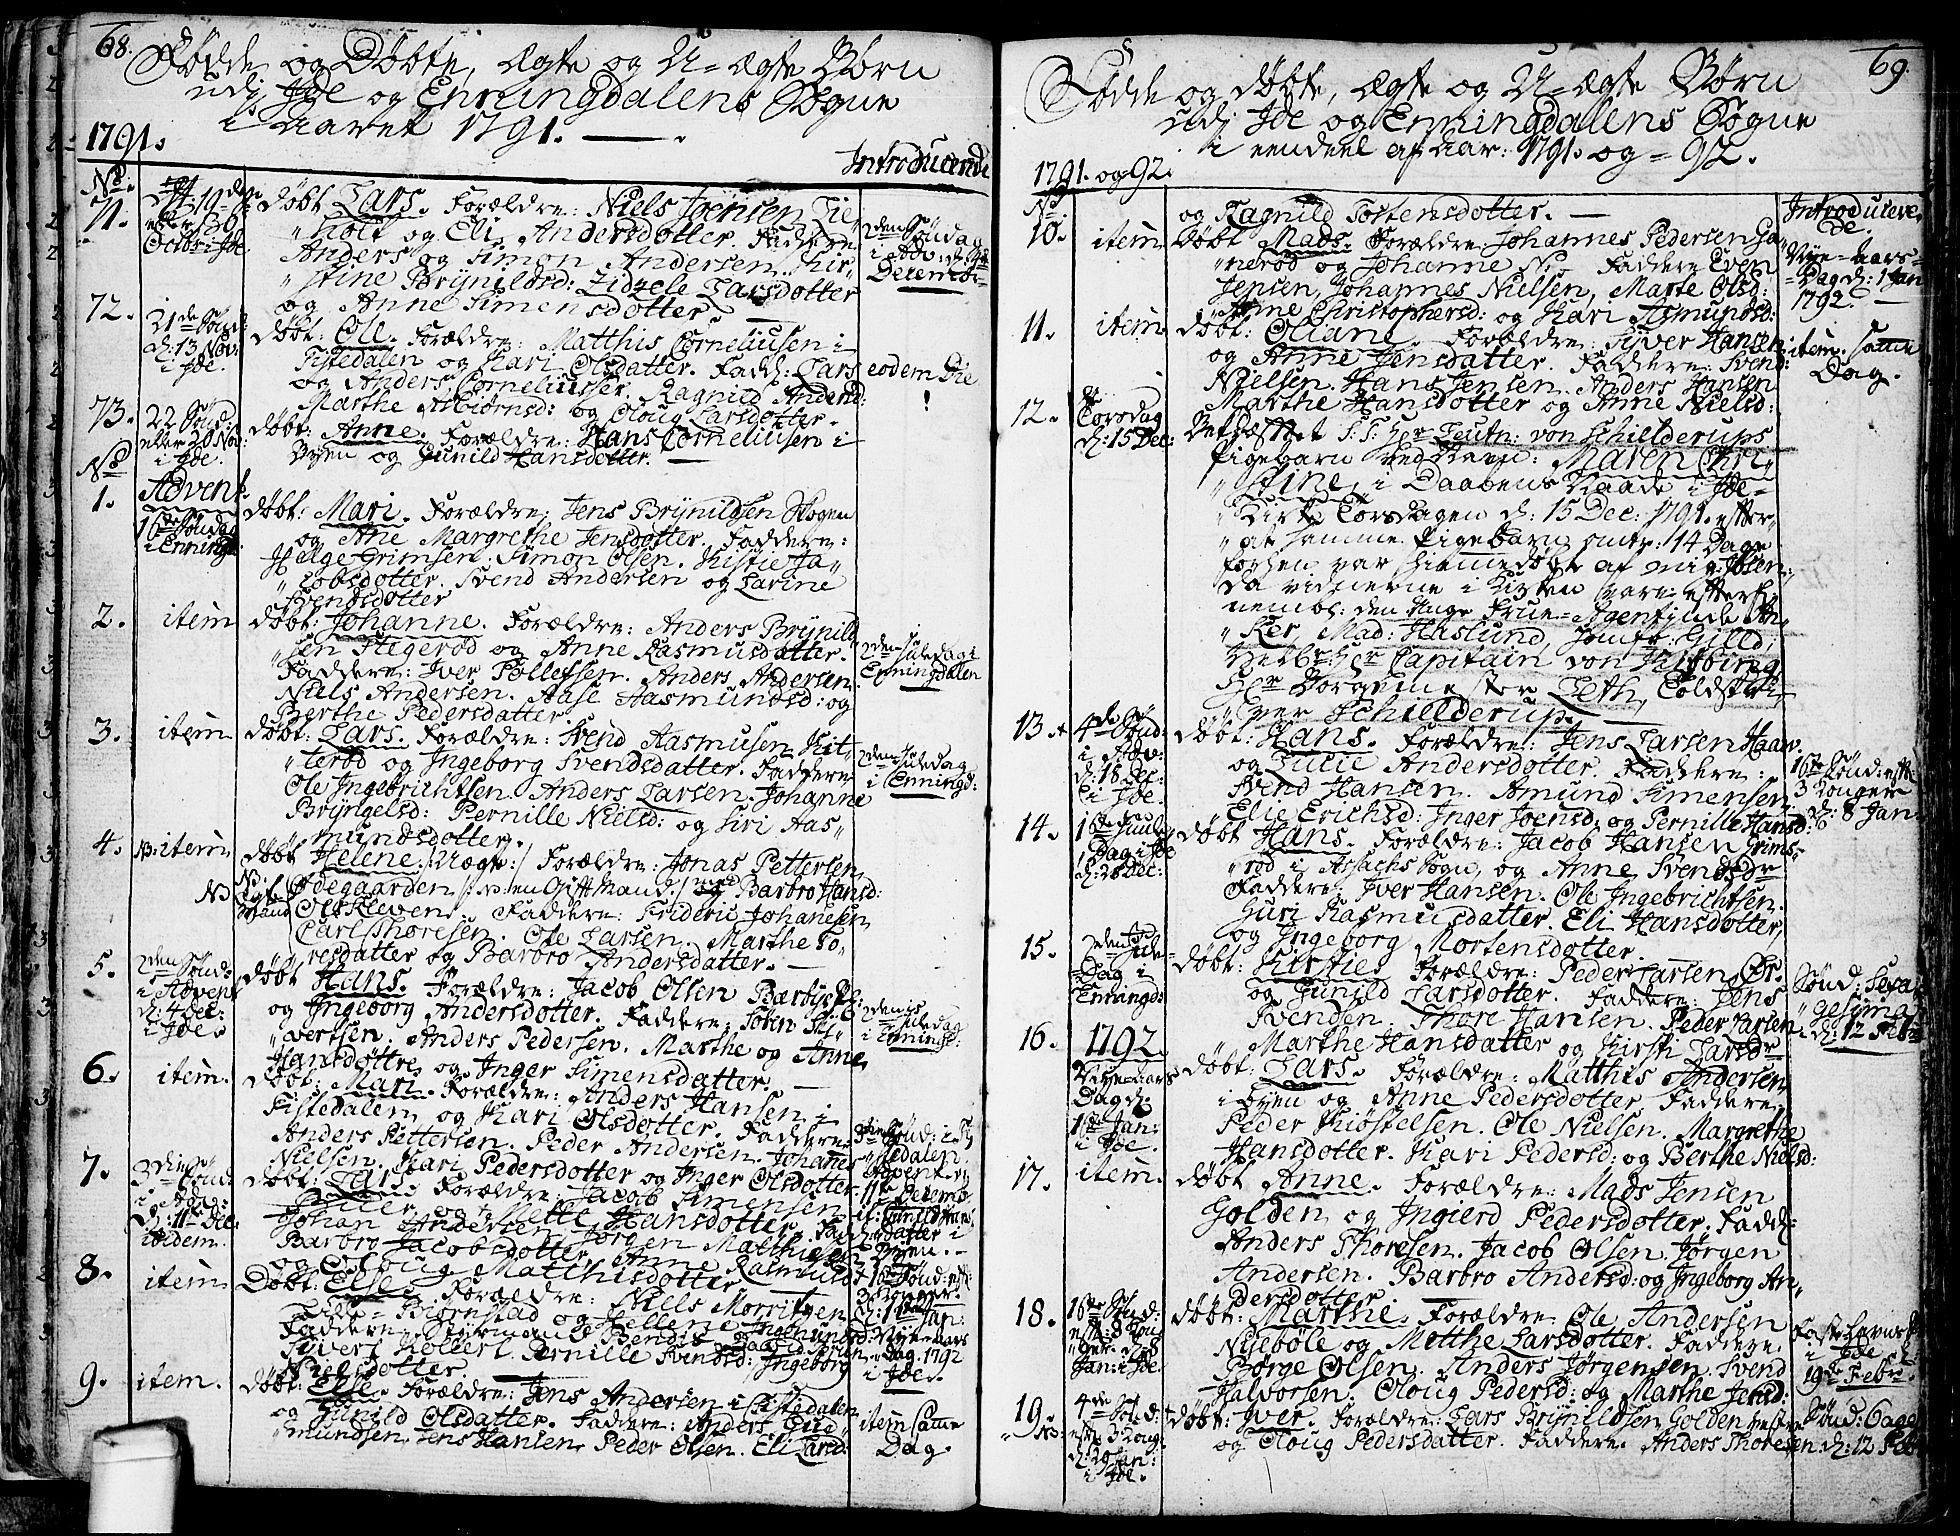 68.
Fødde og Døbte, Ægte og U-ægte Børn
udj Jde og Enningdalens Sogne
i Aaret 1791.
1791.
Introducerede
No.
71.
19de
eller 30
Octob: i Jde.
døbt Lars. Forældre: Niels Joensen Lie
holt og Eli Andersdotter. Faddere
Anders og Simon Andersen. Kir-
stine Brynildsd: Zidzele Larsdotter
og Anne Simensdotter
2den Søndag
i Adv: d: 4de
Decembr:
72.
21de Sønd:
d: 13 Nov:
i Jde.
døbt: Ole. Forældre: Matthis Corneliusen i
Tistedalen og Kari Olsdatter. Fadd: Lars
og Anders Corneliusser. Ragnild Andersd:
Marthe Asbiørnsd: og Oloug Larsdotter.
eodem Die
73.
22 Sønd:
eller 20 Nov:
i Jde.
døbt: Anne. Forældre: Hans Corneliusen i
Byen og Gunild Hansdotter.
No
1.
Advent.
1ste Søndag
i Enningd:
døbt: Mari. Forældre: Jens Brynildsen Skogen
og Ane Margrethe Jensdotter. Faddere:
Helge Grimsen. Simon Olsen. Kistie Ja-
cobsdotter. Svend Andersen og Larine
Svendsdotter
2.
item
døbt: Johanne. Forældre: Anders Brynild
sen Stegerød og Anne Rasmusdatter.
Faddere: Iver Tollefsen. Anders Andersen
Niels Andersen. Aase Aasmundsd: og
Berthe Pedersdatter
2den Juledag i
Enningdalen
3.
item
døbt: Lars. Forældre: Svend Aasmusen Kit-
terød og Ingeborg Svendsdatter. Faddere
Ole Ingebrichtsen. Anders Larsen. Johanne
Bryngelsd: Pernille Nielsd: og Siri Aas-
mundsdotter.
2den Juledag
i Enningd:
4.
NB: item
døbt Helene /: Uægte :/ Forældre: Jonas Pettersen
Ødegaarden en Gift Mand og Barbro Hansd:
Ols Kleven. Faddere: Frideric Johanesen
Carl Thoresen. Ole Larsen. Marthe To-
resdatter og Barbro Andersdatter.
5.
2den Sønd:
i Advent
d: 4 Dec:
i Jde.
døbt Hans. Forældre: Jacob Olsen
og Ingeborg Andersdotter. Faddere: Søren
vertsen. Anders Pedersen. Marthe og Anne
Hansdottre og Inger Simensdatter.
Juledag
i Enningd:
6.
item.
døbt: Mari. Forældre: Anders Hansen i
Tistedalen og Kari Olsdotter. Faddere:
Anders Pettersen. Peder Andersen. Johanes
Nielsen. Kari Pedersdotter og Inger Olsdotter.
3die Sønd: i
7.
3die
Sønd:
i Adv:
d: 11te Dec:
ibidem.
døbt: Lars. Forældre: Jacob Simensen
og Mette Hansdotter. Faddere:
Johan Andersen, Jørgen Matthisen
Barbro Jacobsdotter, Anne Rasmusd:
og Oloug Matthisdotter
8.
item
Døbt: Else. Forældre: Niels Morritzen
Lille-Biørnstad og Hellene Ingemundsd:
Faddere:
Pernille Svendsd: Ingeborg
Nielsdotter.
1ste Sønd: eft:
3 Konger.
d: 1ste Jan:
Nyeaars
Dag. 1792
i Jde.
9.
item.
døbt: Else. Forældre: Jens Andersen i Tistedalen
og Gunild Olsdatter. Faddere: Anders Gud
mundsen, Jens Hansen, Peder Olsen. Eli Larsd:
item Samme
Dag.
69.
Fødde og døbte, Ægte og U-ægte Børn
udj Jde og Enningdalens Sogne
i eendeel af Aar: 1791. og = 92.
1791. og 92.
No.
og Ragnild Tostensdotter.
Introducerede.
10.
item
Døbt Mads. Forældre: Johannes Pedersen Ga-
nerød og Johanne N: Faddere Even
Jensen, Johannes Nielsen, Marte Olsd:
Anne Christophersd: og Kari Asmundsd:
Nye-Aars-
Dag d: 1 Jan
1792.
11.
item
døbt: Oliane. Forældre: Syver Hansen
og Anne Jensdatter. Faddere: Svend
Nielsen. Hans Jensen. Anders Hansen
Marthe Hansdotter og Anne Nielsd:
item. samme
Dag.
12.
Torsdag
d: 15 Dec:
S: T: Hr Leutn: von Schilderups
Pigebarn ved Navn: Maren Chri-
stine, i Daabens Naade i Jde-
Kirke Torsdagen d: 15 Dec: 1791. efter
at samme Pigebarn omtr: 14 Dage
forhen var hiemmedøbt af mig selv.
da vidnerne i Kirken vare: efter
den Unge Frue-Agentinde An-
ker, Mad: Haslund, Jomfr: Gilld,
Hr Capitain von
Hr Borgemester Leth,
Schillderup.
13.
4de Sønd:
i Adv:
d: 18 Dec:
i Jde.
døbt: Hans. Forældre: Jens Larsen Haav.
og Lucie Andersdotter. Faddere:
Svend Hansen. Amund Simensen
Elie Erichsd: Inger Joensd: og Pernille Hansd:
1ste Sønd: eft:
3 Konger
d: 8 Jan:
14.
1ste Juule
Dag i Jde
d: 28 Dec:
døbt Hans. Forældre: Jacob Hansen Grims-
rød i Assachs Sogn, og Anne Svendsdr
Faddere: Iver Hansen. Ole Ingebrichtsen.
Guri Rasmusdatter. Eli Hansdotter,
og Ingeborg Mortensdotter.
15.
2den Jule-
Dag i
Enningd:
døbt: Kirstie. Forældre: Peder Larsen Ør.
og Gunild Larsdotter. Faddere: Jens
Svendsen. Thore Hansen. Peder Larsen
Marthe Hansdatter og Kirsti Larsdr
Sønd: Sexa-
gesyma
d: 12 Febr:
16.
1792
Nye-aars
Dag d:
1ste Jan:
i Jde.
døbt: Lars. Forældre: Matthis Andersen
i Byen og Anne Pedersdotter Faddere
Peder Kiøstelsen. Ole Nielsen. Margrethe
Hansdotter. Kari Pedersd: og Berthe Nielsd:
17.
item.
døbt Anne. Forældre: Mads Jensen
Golden og Ingierd Pedersdotter. Fadd:
Anders Thoresen. Jacob Olsen. Jørgen
Andersen. Barbro Andersd: og Ingeborg An-
dersdotter.
18.
1ste Sønd:
eft: 3 Kong
ger. d: 8
Jan: i Jde.
døbt: Marthe. Forældre: Ole Andersen
Nisebøle og Matthe Larsdotter. Faddere:
Børge Olsen. Anders Jørgensen. Svend
Halvorsen. Oloug Pedersd: og Marthe Jensd:
Fastelavns
i Jde d:
19de Febr:
19.
4de Sønd:
eft: 3 Kong:
d: 29 Jan:
i Jde.
døbt: Iver. Forældre: Lars Brynildsen Golden
og Oloug Pedersdatter. Faddere. Anders Thoresen
Sønd: Sexages
d: 12 Feb